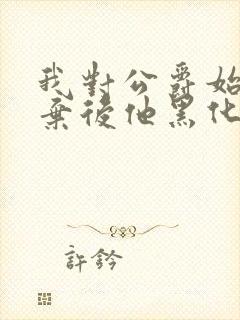 我對公爵始
棄後他黑化
許鈐